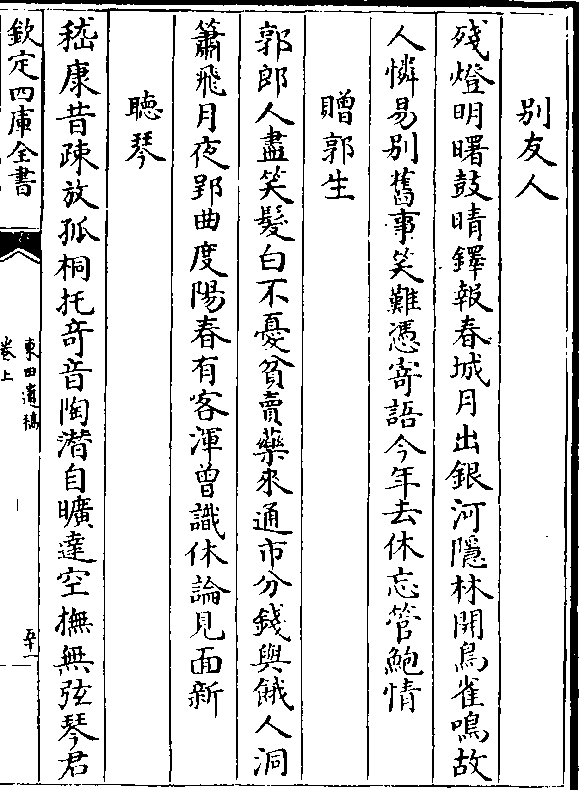 別友人
殘燈明曙鼓晴鐸報春城月出銀河隱林開鳥雀鳴故
人憐易別舊事笑難憑寄語今年去休忘管鮑情
贈郭生
郭郎人盡笑髮白不憂貧賣藥來通市分錢與餓人洞
簫飛月夜郢曲度陽春有客渾曾識休論見面新
聽琴
嵇康昔疎放孤桐托奇音陶潛自曠達空撫無弦琴君
欽定四庫全書
東田遺稿
卷上